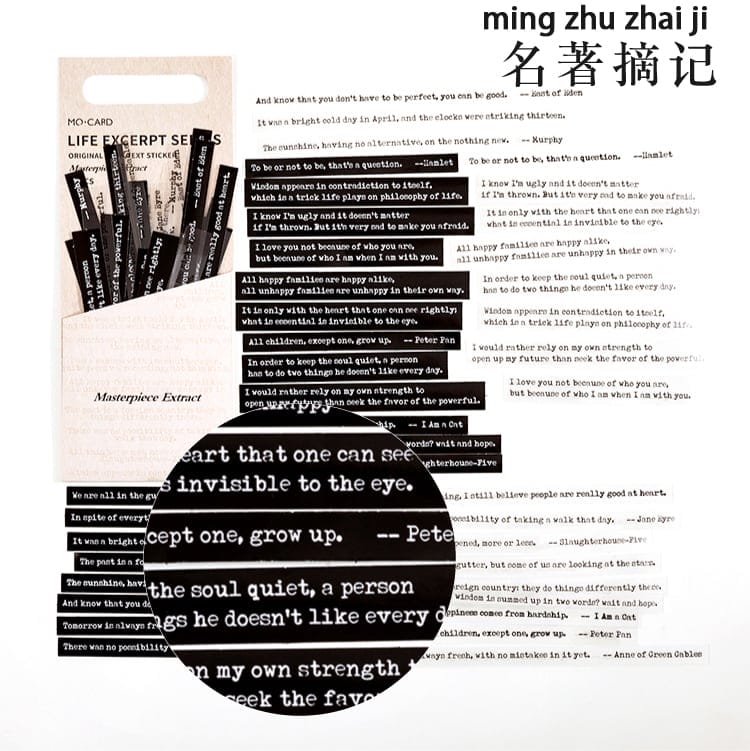 ming zhu zhai ji
名著摘记
MO·CARD
LIFE EXCERPT SE
ORIGINAL EXT STICKER
Masterpiece Extract
Masterpiece Extract
-- Murphy
king thirteen.
-- East of Eden
are really good at heart.
st, a person
t like every day.
or of the powerful.
And know that you don't have to be perfect, you can be good. -- East of Eden
It was a bright cold day in April, and the clocks were striking thirteen.
The sunshine, having no alternative, on the nothing new. -- Murphy
To be or not to be, that's a question. --Hamlet
To be or not to be, that's a question. --Hamlet
Wisdom appears in contradiction to itself,
which is a trick life plays on philosophy of life.
I know I'm ugly and it doesn't matter
if I'm thrown. But it's very sad to make you afraid.
I know I'm ugly and it doesn't matter
if I'm thrown. But it's very sad to make you afraid.
It is only with the heart that one can see rightly;
what is essential is invisible to the eye.
I love you not because of who you are,
but because of who I am when I am with you.
All happy families are happy alike,
all unhappy families are unhappy in their own way.
All happy families are happy alike,
all unhappy families are unhappy in their own way.
In order to keep the soul quiet, a person
has to do two things he doesn't like every day.
It is only with the heart that one can see rightly;
what is essential is invisible to the eye.
Wisdom appears in contradiction to itself,
which is a trick life plays on philosophy of life.
All children, except one, grow up. -- Peter Pan
In order to keep the soul quiet, a person
has to do two things he doesn't like every day.
I would rather rely on my own strength to
open up my future than seek the favor of the powerful.
I would rather rely on my own strength to
open up my future than seek the favor of the powerful.
I love you not because of who you are,
but because of who I am when I am with you.
hip. -- I Am a Cat
words? wait and hope.
ughterhouse-Five
happy
eart that one can see
s invisible to the eye.
cept one, grow up. -- Pete
the soul quiet, a person
gs he doesn't like every d
n my own strength t
seek the favo
We are all in the gu
In spite of everyt
It was a bright c
The past is a fo
The sunshine, hav
And know that you do
Tomorrow is always fr
There was no possibility
ing, I still believe people are really good at heart.
ossibility of taking a walk that day. -- Jane Eyre
pened, more or less. -- Slaughterhouse-Five
gutter, but some of us are looking at the stars.
reign country: they do things differently there.
wisdom is summed up in two words? wait and hope.
ppiness comes from hardship. -- I Am a Cat
children, except one, grow up. -- Peter Pan
ways fresh, with no mistakes in it yet. -- Anne of Green Gables